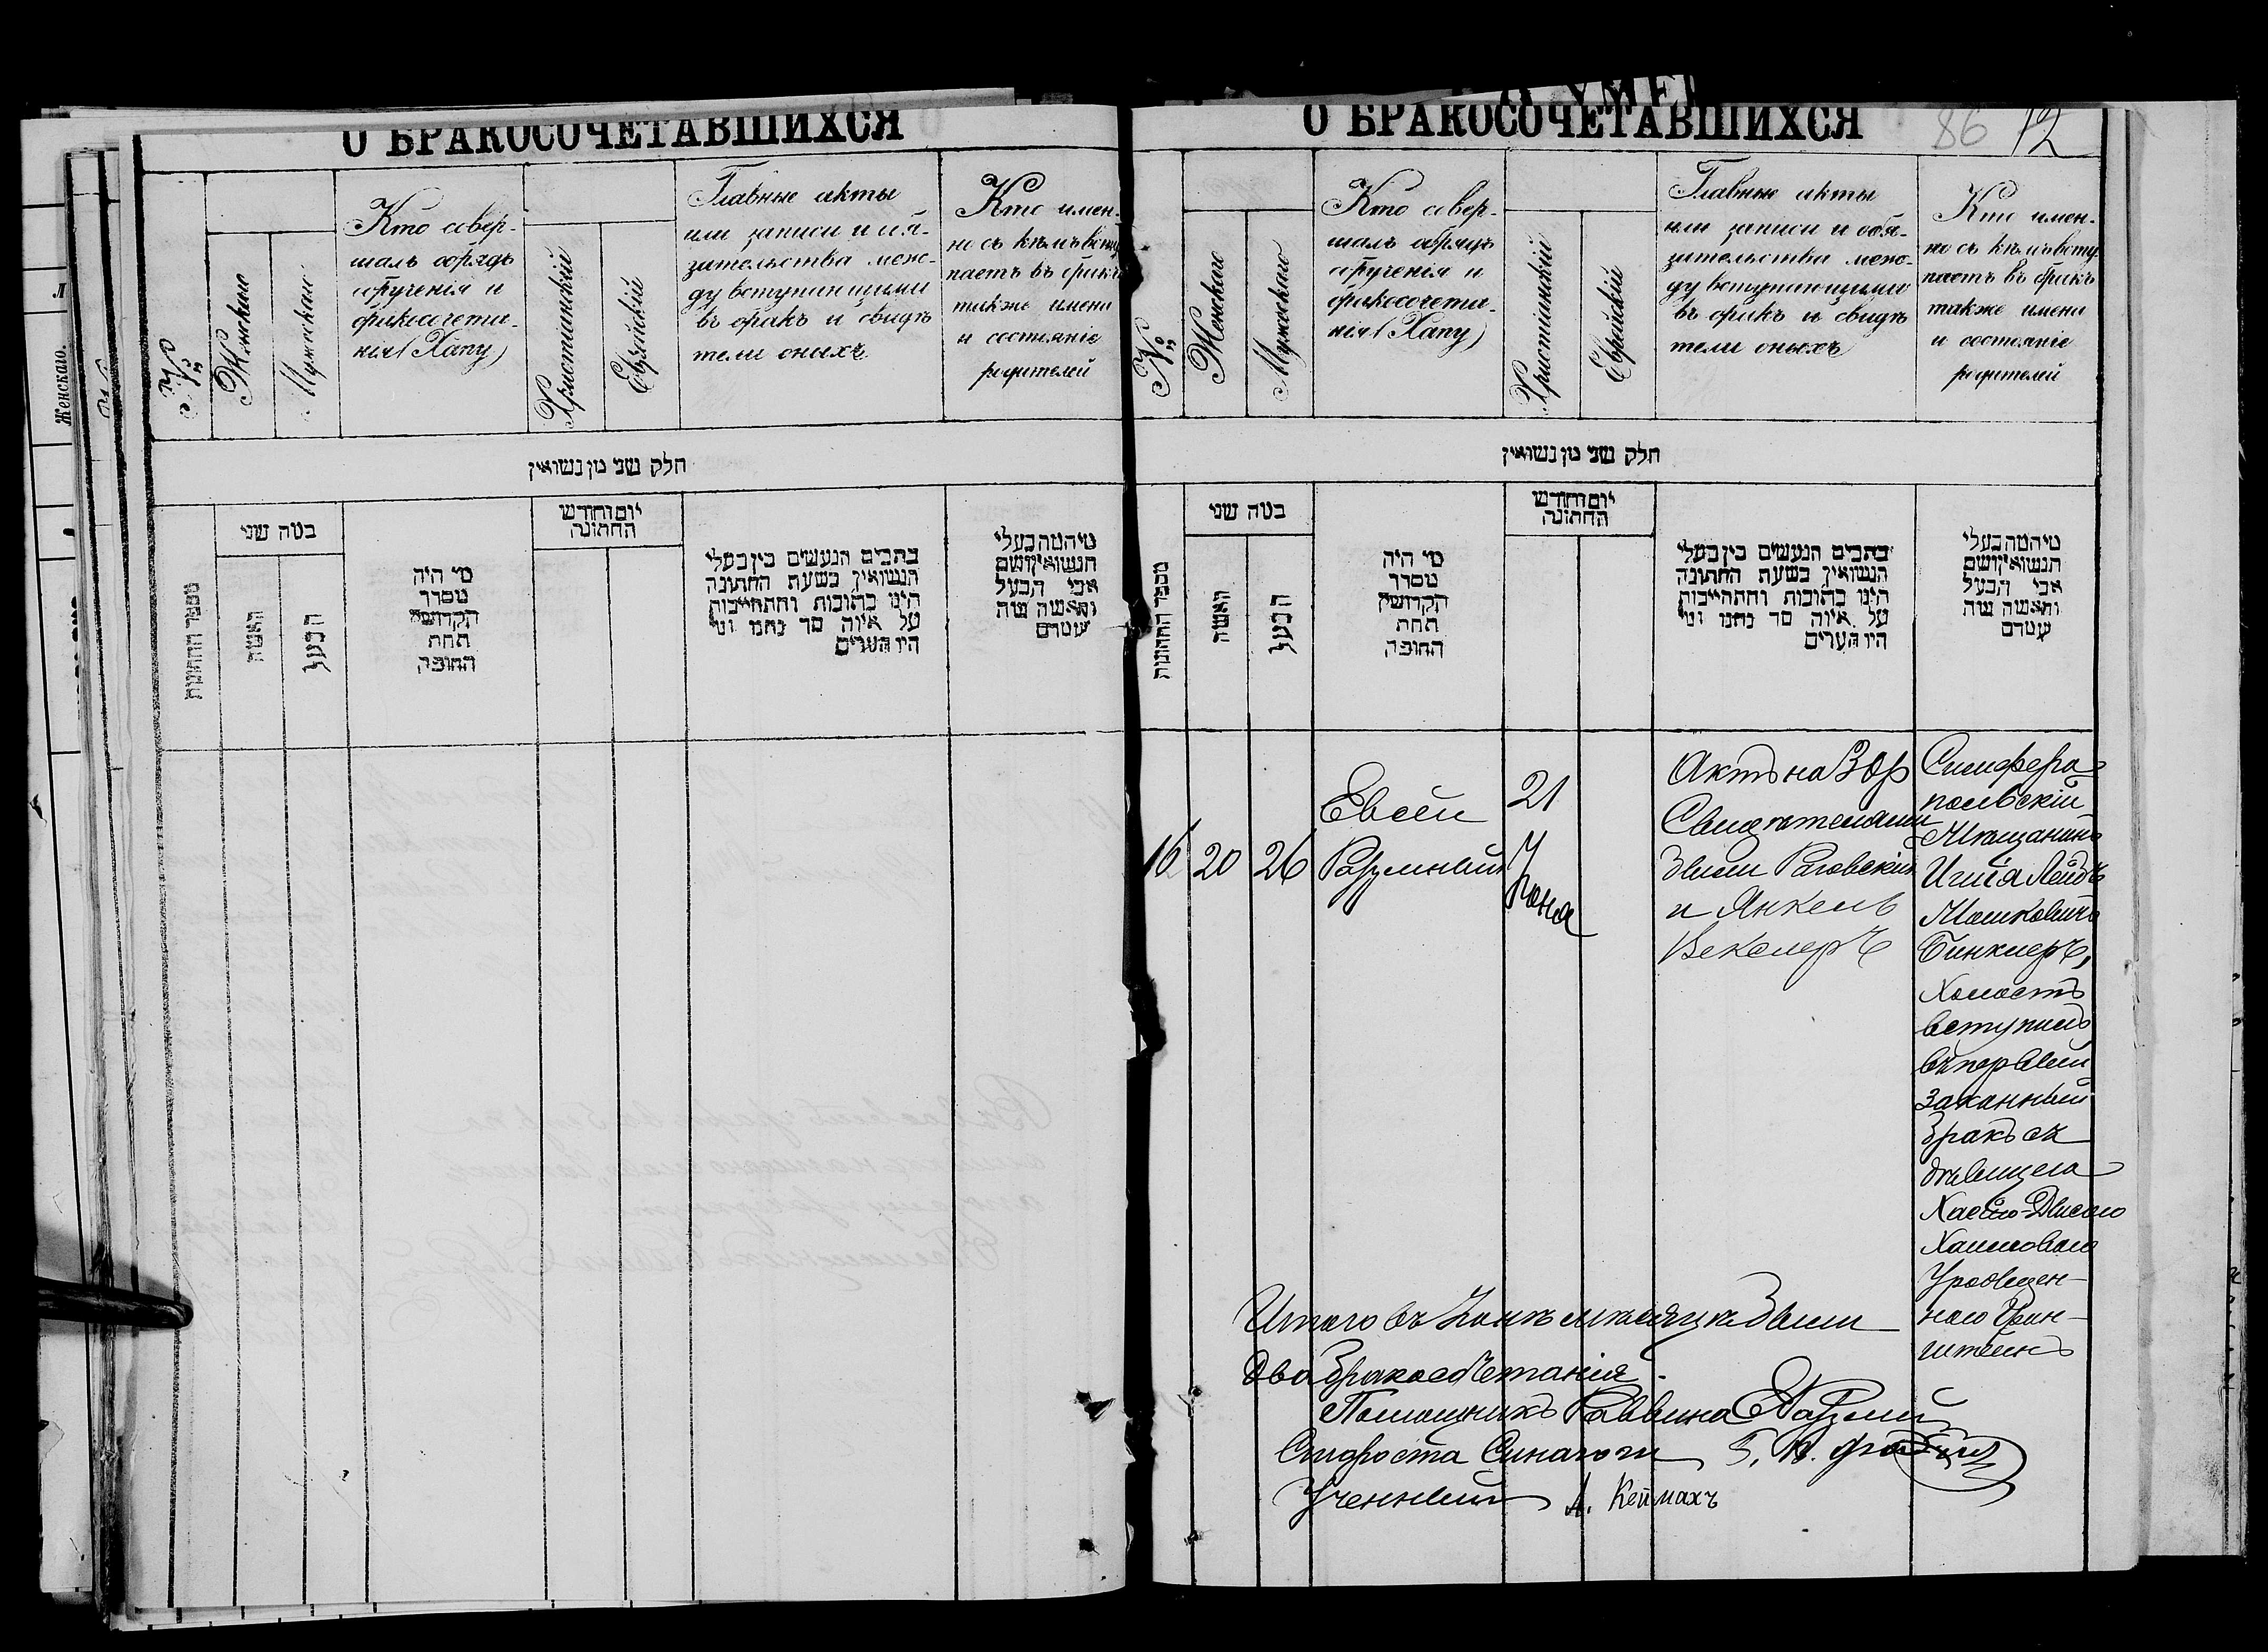 О БРАКОСОЧЕТАВШИХСЯ
№
Женскаго
Мужскаго
Кто совер-
шалъ обрядъ
обрученія и
бракосочета-
нія (Хапу)
Христіанскій
Еврейскій
Главные акты
или записи и обя-
зательства меж-
ду вступающими
въ бракъ и свидѣ
тели оныхъ
Кто имен-
но съ кѣмъ всту
паетъ въ бракъ
также имена
и состояніе
родителей
חלק שני מן נשואין
מספר החתונות
כמה שני
האשה
הבעל
מי היה
מסדר
הקדושין
תחת
החופה
יום וחודש
החתונה
כתבים הנעשים בין בעלי
הנשואין בשעת החתונה
היינו כתובות והתחייבות
על איזה סך נתנו ומי
היו העדים
מי המה בעלי
הנשואין ושם
אבי הבעל
והאשה ומה
עמדם
О БРАКОСОЧЕТАВШИХСЯ
86 12
№
Женскаго
Мужскаго
Кто совер-
шалъ обрядъ
обрученія и
бракосочета-
нія (Хапу)
Христіанскій
Еврейскій
Главные акты
или записи и обя-
зательства меж-
ду вступающими
въ бракъ и свидѣ
тели оныхъ
Кто имен-
но съ кѣмъ всту
паетъ въ бракъ
также имена
и состояніе
родителей
חלק שני מן נשואין
מספר החתונות
כמה שני
האשה
הבעל
מי היה
מסדר
הקדושין
תחת
החופה
יום וחודש
החתונה
כתבים הנעשים בין בעלי
הנשואין בשעת החתונה
היינו כתובות והתחייבות
על איזה סך נתנו ומי
היו העדים
מי המה בעלי
הנשואין ושם
אבי הבעל
והאשה ומה
עמדם
16
20
26
Евсей
Разумный
21
Юня
Актъ на
Свидѣтелями
были Раговскій
и Янкель
Векслеръ
Симферо-
польскій
Мѣщанинъ
Лейбъ
Мошковичъ
Бинклеръ,
Холостъ
вступилъ
въ первый
законный
бракъ съ
дѣвицею
Хаею-Двисею
Хаимовою
Урожден-
ною Грин-
штейнъ
Итого въ Юнѣ мѣсяцѣ были
два бракосочетанія.
Помощникъ Раввина Е Разумный
Староста Синагоги
Ученный А. Кеймахъ
Женскаго.